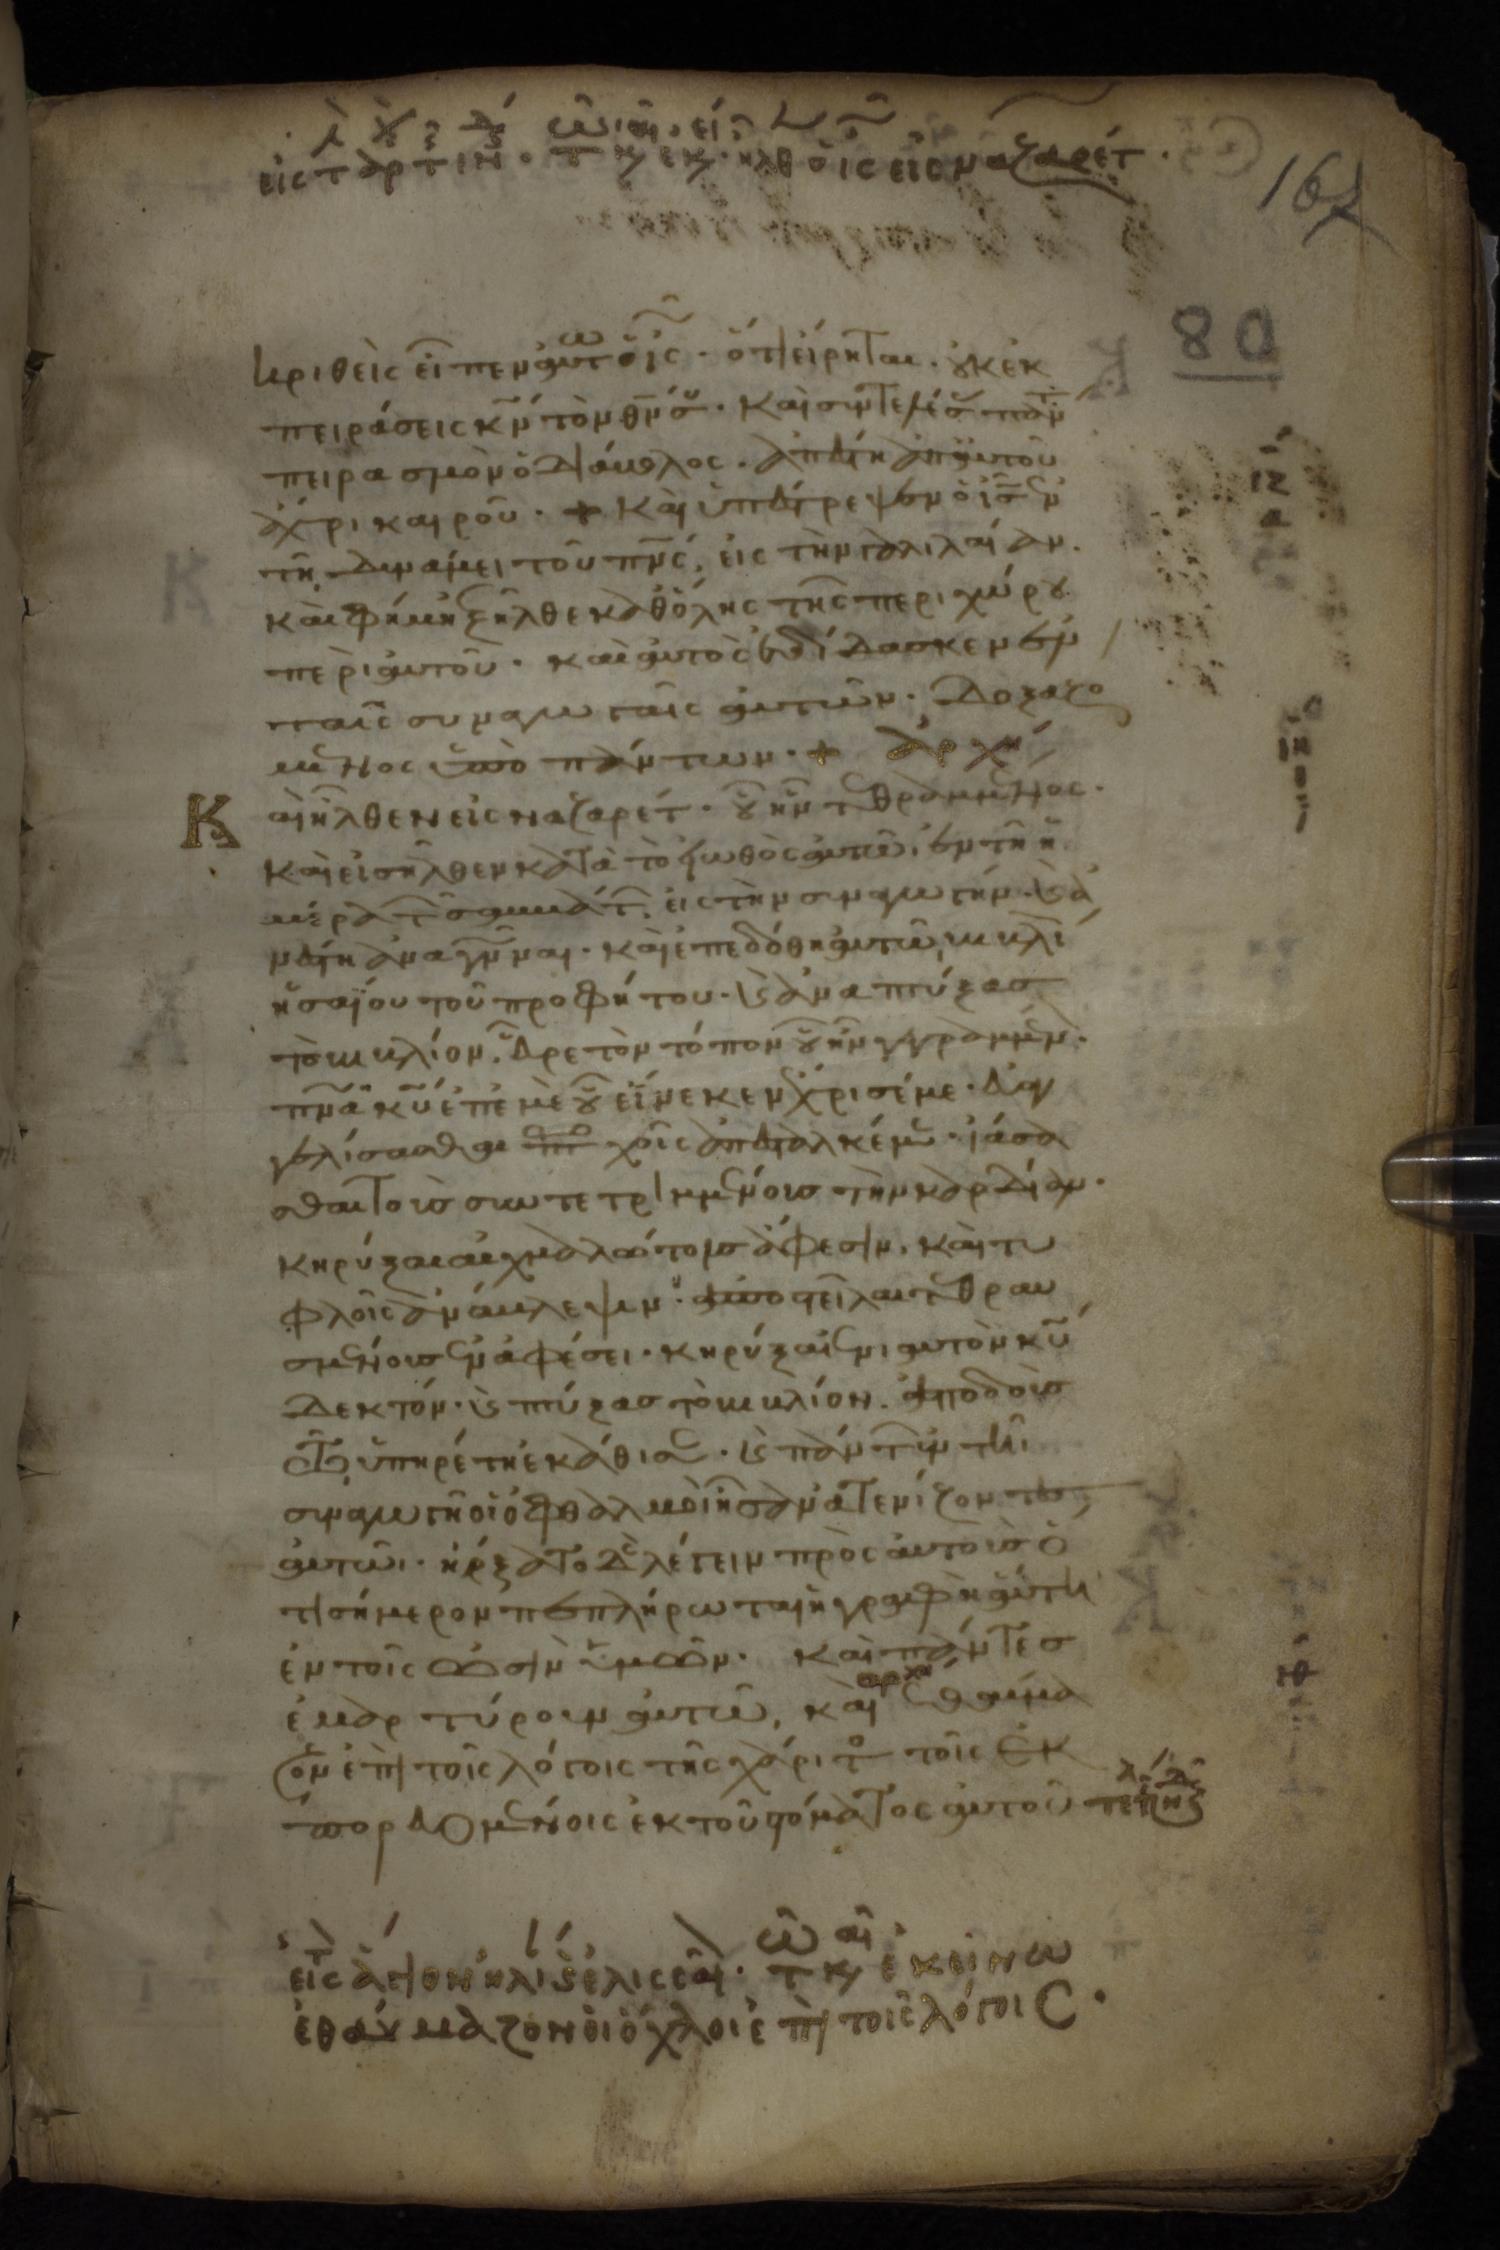 εἰς τ ἀρχ τ ἰν. τ κ εκ. ἦλθ ὁ ις εἰς ναζαρέτ.
167
80
κριθεὶς εἶπεν αὐτῶ ὁ ις. ὅτι εἴρηται. οὐκ ἐκ
πειράσεις κν τὸν θν σου. Καὶ συντελέσας πάντα
πειρασμὸν ὁ διάβολος. ἀπέστη ἀπ αὐτοῦ
ἄχρι καιροῦ. + Καὶ ὑπέστρεψεν ὁ ις ἐν
τῆ δυνάμει τοῦ πνς, εἰς τὴν γαλιλαίαν.
καὶ φήμη ἐξῆλθε καθόλης τῆς περιχώρου
περὶ αὐτοῦ. καὶ αὐτὸς ἐδίδασκεν ἐν
ταῖς συναγωγαῖς αὐτῶν. δοξαζό
μενος ὑπὸ πάντων. + ἀρχή
Καὶ ἦλθεν εἰς ναζαρέτ. οὗ ἦν τεθραμμένος.
Καὶ εἰσῆλθεν κατὰ τὸ εἰωθὸς αὐτῶ, ἐν τῆ ἡ
μέρα τῶν σαββάτων, εἰς τὴν συναγωγήν. καὶ ἀ
νέστη ἀναγνῶναι. καὶ ἐπεδόθη αὐτῶ βιβλίον
ἡσαΐου τοῦ προφήτου. καὶ ἀναπτύξας
τὸ βιβλίον, εὗρε τὸν τόπον οὗ ἦν γεγραμμένον.
πνα κυ ἐπ ἐμὲ οὗ εἵνεκεν ἔχρισέ με. εὐαγ
γελίσασθαι πτωχοῖς ἀπέσταλκέ με. ἰάσα
σθαι τοὺς συντετριμμένους τὴν καρδίαν.
κηρύξαι αἰχμαλώτοις ἄφεσιν. καὶ τυ
φλοῖς ἀνάβλεψιν. ἀποστεῖλαι τεθραυ
σμένους ἐν ἀφέσει. κηρύξαι ἐνιαυτὸν κυ
δεκτόν. καὶ πτύξας τὸ βιβλίον. ἀποδοὺς
τῶ ὑπηρέτη ἐκάθισε. καὶ πάντων ἐν τῆ
συναγωγῆ οἱ ὀφθαλμοὶ ἦσαν ἀτενίζοντες
αὐτῶ. ἤρξατο δὲ λέγειν πρὸς αὐτοὺς ὅ
τι σήμερον πεπλήρωται ἡ γραφὴ αὕτη
ἐν τοῖς ὠσὶν ὑμῶν. καὶ πάντες
ἐμαρτύρουν αὐτῶ, καὶ ἐθαύμα
αρχη
ζον ἐπὶ τοῖς λόγοις τῆς χάριτος τοῖς ἐκ
πορευομένοις ἐκ τοῦ στόματος αὐτοῦ
εἰς τ ἅγιον ἠλί καὶ ἐλισσαῖ. τ κ ἐκείνω
ἐθαύμαζον οἱ ὄχλοι ἐπὶ τοῖς λόγοις.